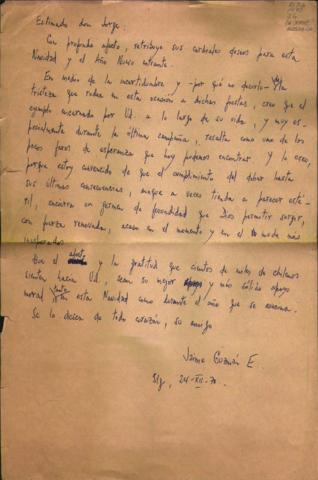 Estimado don Jorge:
Con profundo afecto, retribuyo sus cordiales deseos para esta
Navidad y el Año Nuevo entrante.
En medio de la incertidumbre y -por qué no decirlo- la
tristeza que rodea en esta ocasión a dichas fiestas, creo que el
ejemplo encarnado por Ud. a lo largo de su vida, y muy es-
pecialmente durante la última campaña, resalta como uno de los
pocos faros de esperanza que hoy podemos encontrar. Y lo creo,
porque estoy convencido de que el cumplimiento del deber hasta
sus últimas consecuencias, aunque a veces tienda a parecer esté-
ril, encierra un germen de fecundidad que Dios permitirá surgir,
con fuerza renovada, acaso en el momento y en el modo más
inesperados.
Que el afecto y la gratitud que cientos de miles de chilenos
sienten hacia Ud., sean su mejor y más sólido apoyo
moral tanto en esta Navidad como durante el año que se avecina.
Se lo desea de todo corazón, su amigo
Jaime Guzmán E.
Stgo, 24-XII-70.